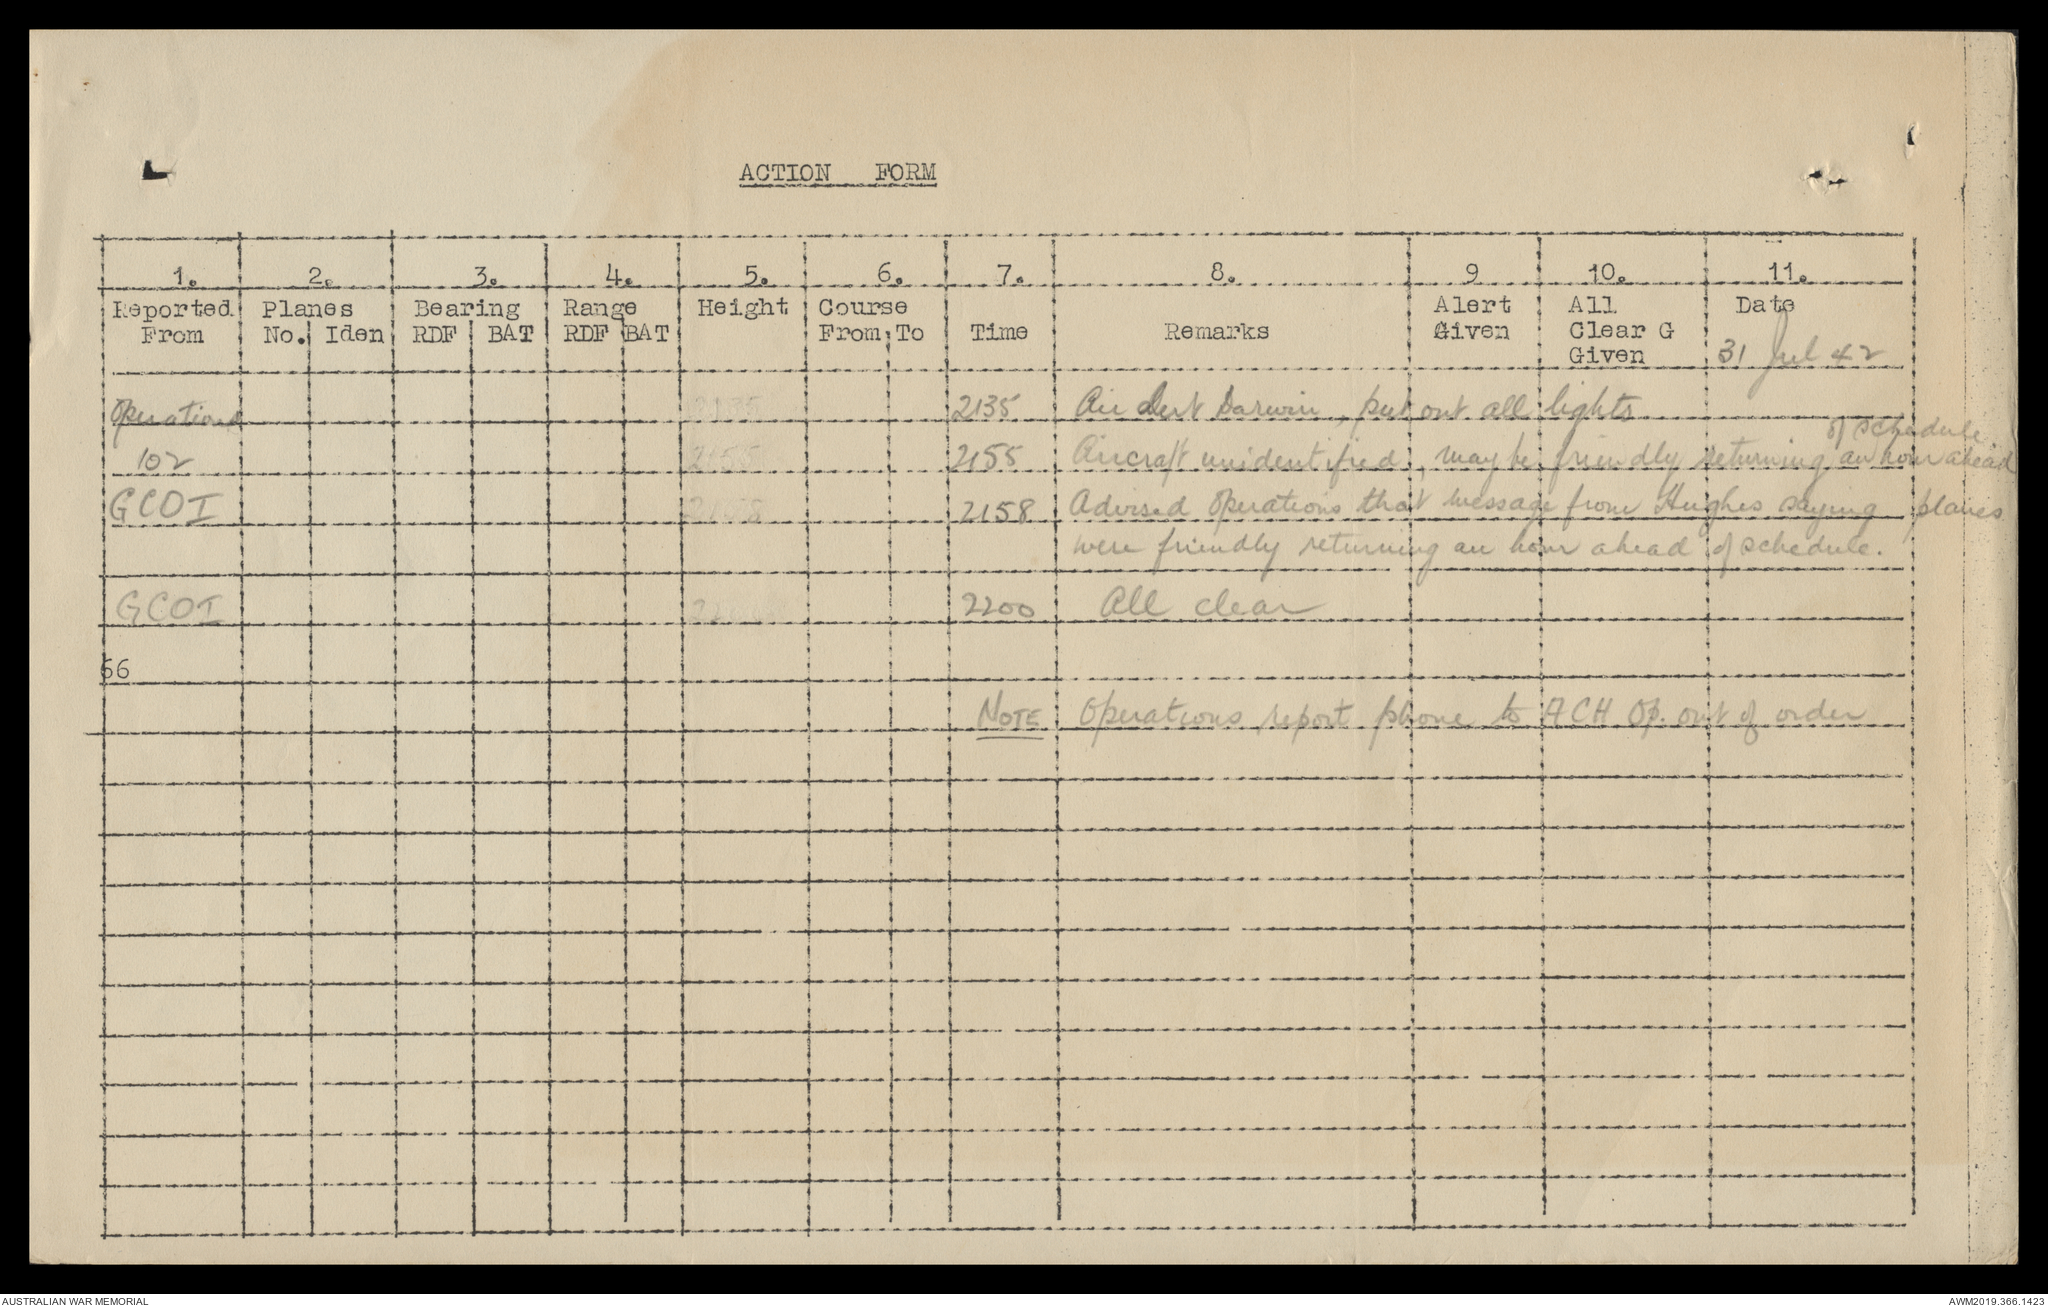 ACTION FORM
1. 2. 3. 4. 5. 6. 7. 8. 9 10. 11.
Reported Planes Bearing Range Height Course Alert All Date
From No. Iden RDF BAT RDF BAT From To Time Remarks Given Clear G
Given 31 Jul 42
Operations 2135 2135 Air Alert Darwin, put out all lights
of schedule.
102 2155 2155 Aircraft unidentified, may be friendly returning an hour ahead
GCOI 2158 2158 Advised Operations that message from Hughes saying planes
were friendly returning an hour ahead of schedule.
GCOI 2200 2200 All clear
66
NOTE Operations report phone to ACH Op. out of order
AUSTRALIAN WAR MEMORIAL AWM2019.366.1423